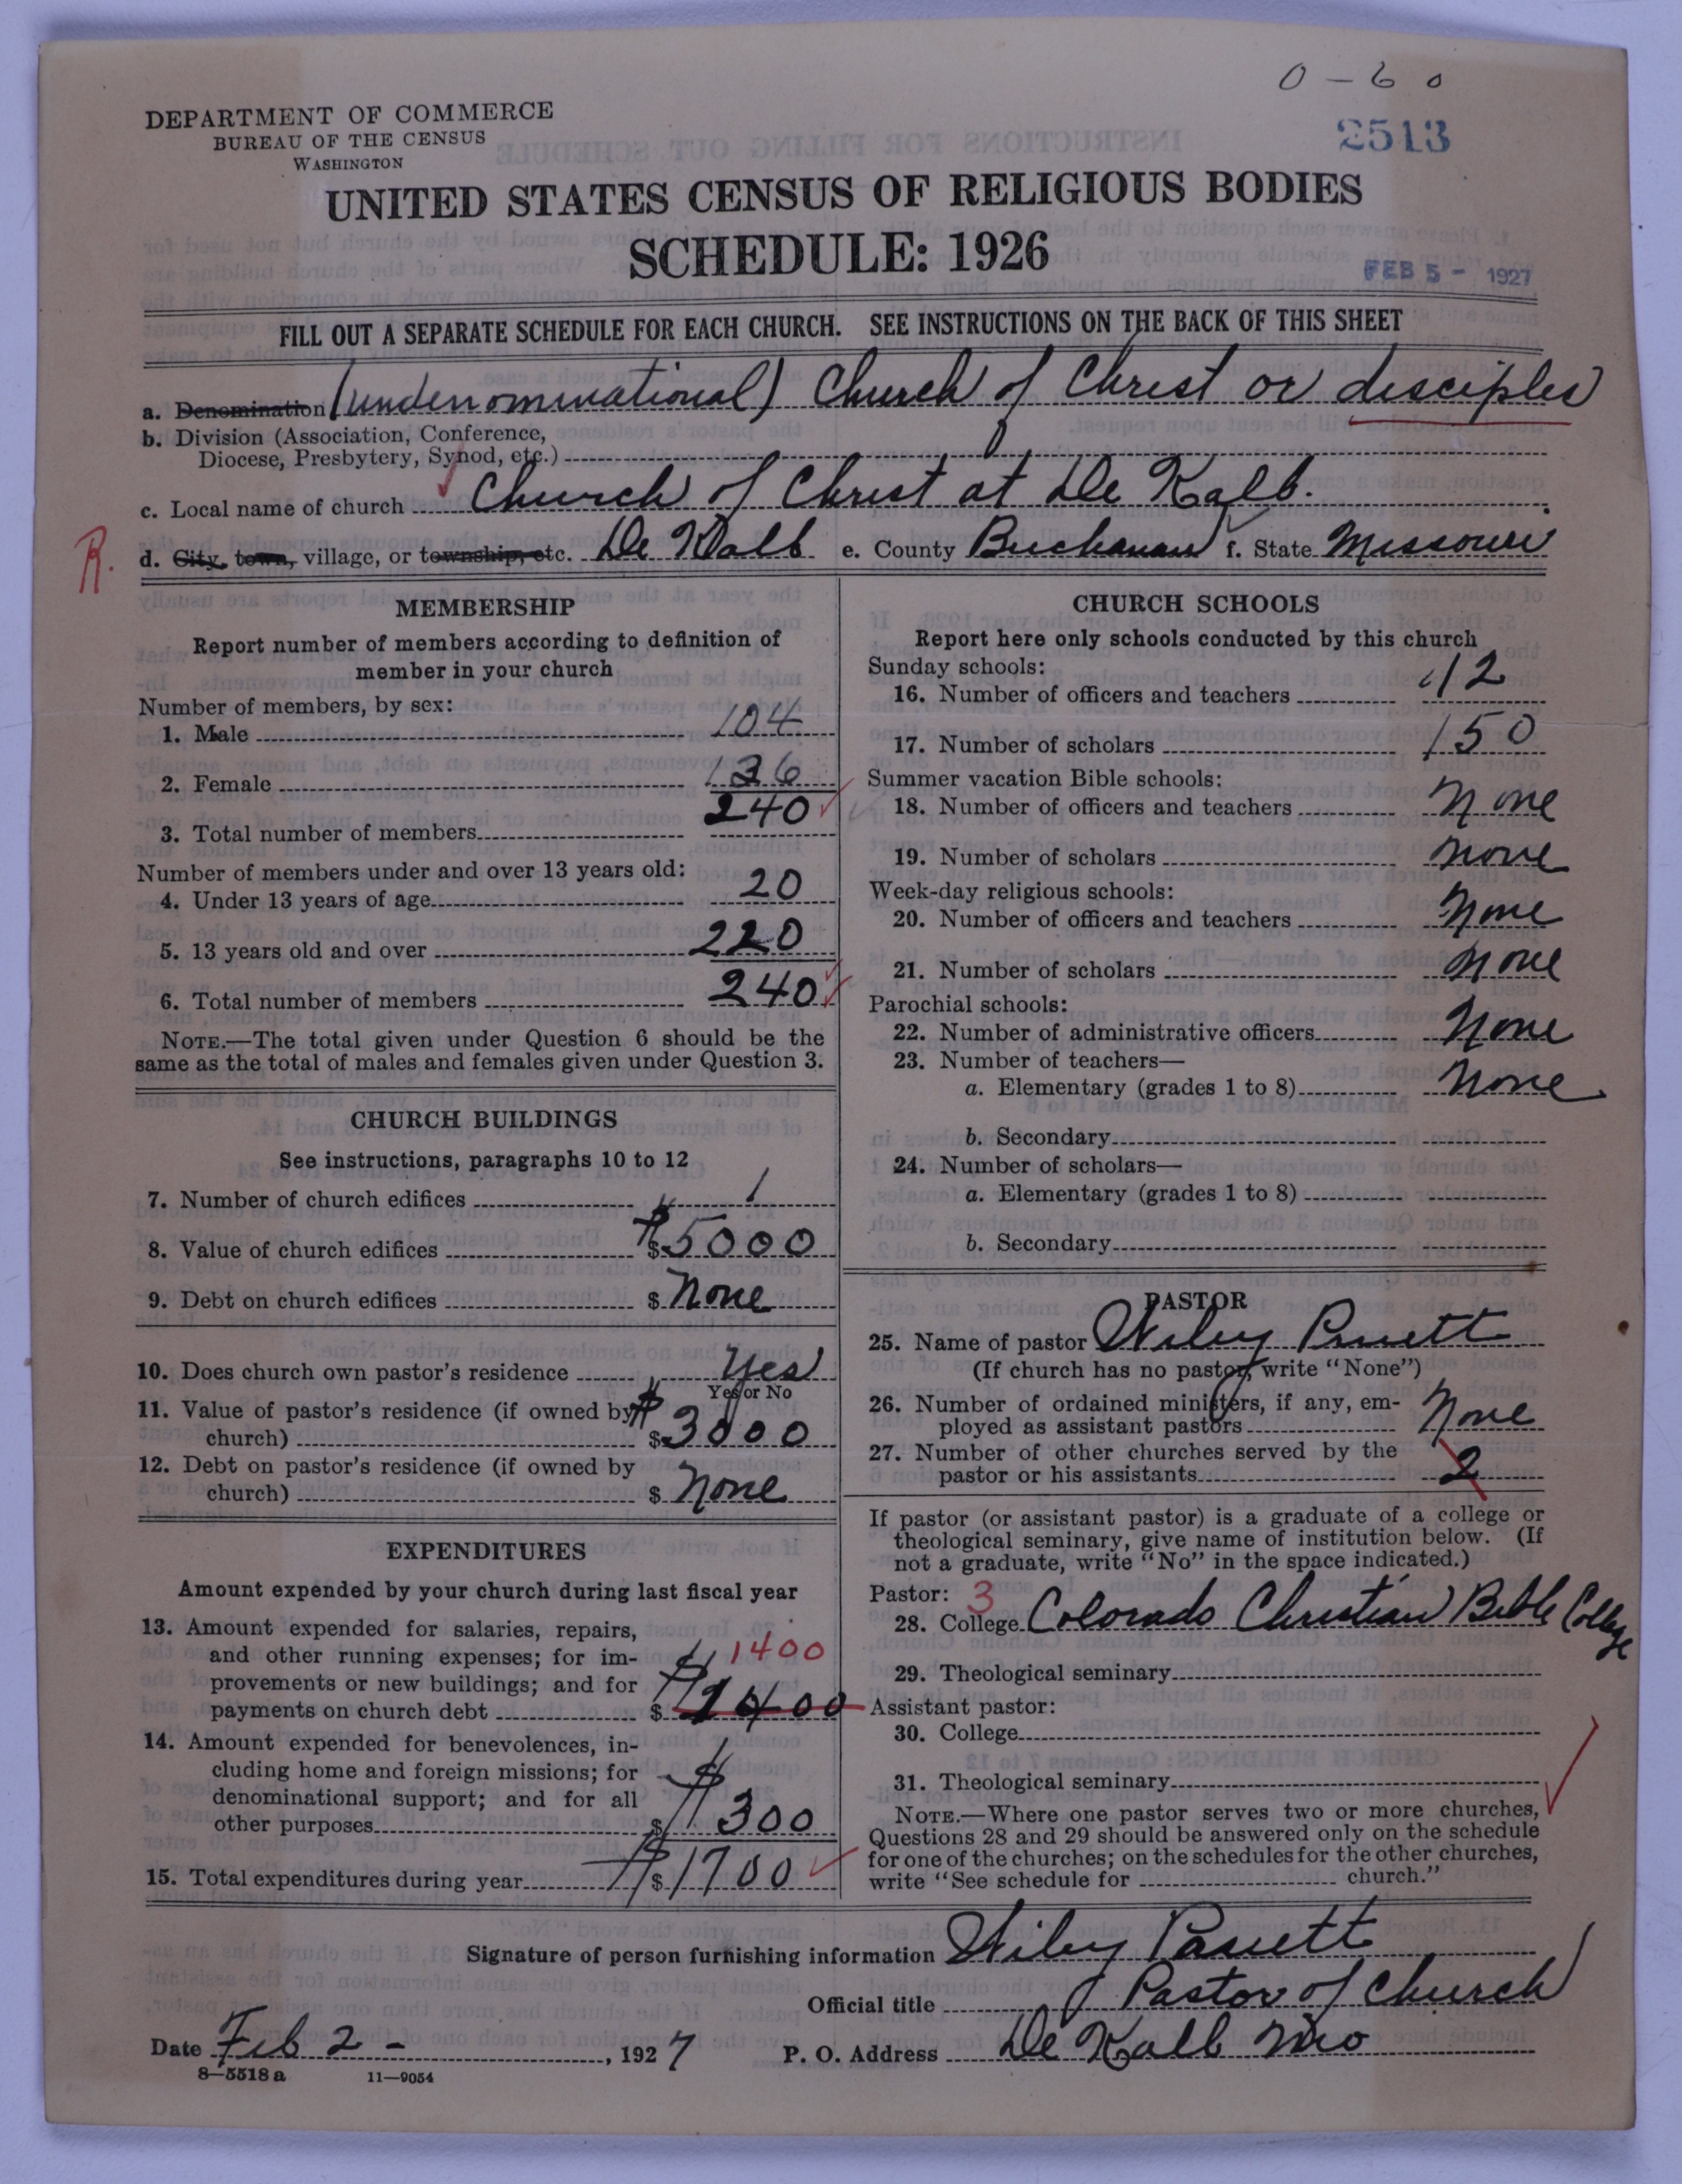 0-60
DEPARTMENT OF COMMERCE
BUREAU OF THE CENSUS
WASHINGTON
2513
UNITED STATES CENSUS OF RELIGIOUS BODIES
SCHEDULE: 1926
FEB 5 - 1927
FILL OUT A SEPARATE SCHEDULE FOR EACH CHURCH. SEE INSTRUCTIONS ON THE BACK OF THIS SHEET
a. Denomination (undenominational) Church of Christ or disciples
b. Division (Association, Conference,
Diocese, Presbytery, Synod, etc.)
c. Local name of church Church of Christ at De Kalb.
R. d. City, town, village, or township, etc. De Kalb e. County Buchanan f. State Missouri
MEMBERSHIP
Report number of members according to definition of
member in your church
Number of members, by sex:
1. Male 104
2. Female 136
3. Total number of members 240
Number of members under and over 13 years old:
4. Under 13 years of age 20
5. 13 years old and over 220
6. Total number of members 240
NOTE.—The total given under Question 6 should be the
same as the total of males and females given under Question 3.
CHURCH BUILDINGS
See instructions, paragraphs 10 to 12
7. Number of church edifices 1
8. Value of church edifices $ $5000
9. Debt on church edifices $ None
10. Does church own pastor's residence Yes
Yes or No
11. Value of pastor's residence (if owned by $
church) $ 3000
12. Debt on pastor's residence (if owned by
church) $ None
EXPENDITURES
Amount expended by your church during last fiscal year
13. Amount expended for salaries, repairs,
and other running expenses; for im- 1400
provements or new buildings; and for $
payments on church debt $ 1400
14. Amount expended for benevolences, in-
cluding home and foreign missions; for $
denominational support; and for all
other purposes $ 300
15. Total expenditures during year $ $ 1700
CHURCH SCHOOLS
Report here only schools conducted by this church
Sunday schools:
16. Number of officers and teachers 12
17. Number of scholars 150
Summer vacation Bible schools:
18. Number of officers and teachers None
19. Number of scholars None
Week-day religious schools:
20. Number of officers and teachers None
21. Number of scholars None
Parochial schools:
22. Number of administrative officers None
23. Number of teachers—
a. Elementary (grades 1 to 8) None
b. Secondary
24. Number of scholars—
a. Elementary (grades 1 to 8)
b. Secondary
PASTOR
25. Name of pastor Wiley Pruett
(If church has no pastor, write "None")
26. Number of ordained ministers, if any, em-
ployed as assistant pastors None
27. Number of other churches served by the
pastor or his assistants 2
If pastor (or assistant pastor) is a graduate of a college or
theological seminary, give name of institution below. (If
not a graduate, write "No" in the space indicated.)
Pastor: 3
28. College Colorado Christian Bible College
29. Theological seminary
Assistant pastor:
30. College
31. Theological seminary
NOTE.—Where one pastor serves two or more churches,
Questions 28 and 29 should be answered only on the schedule
for one of the churches; on the schedules for the other churches,
write "See schedule for church."
Signature of person furnishing information Wiley Pruett
Official title Pastor of Church
Date Feb 2 - , 1927 P. O. Address De Kalb Mo
8—5518a 11—9054